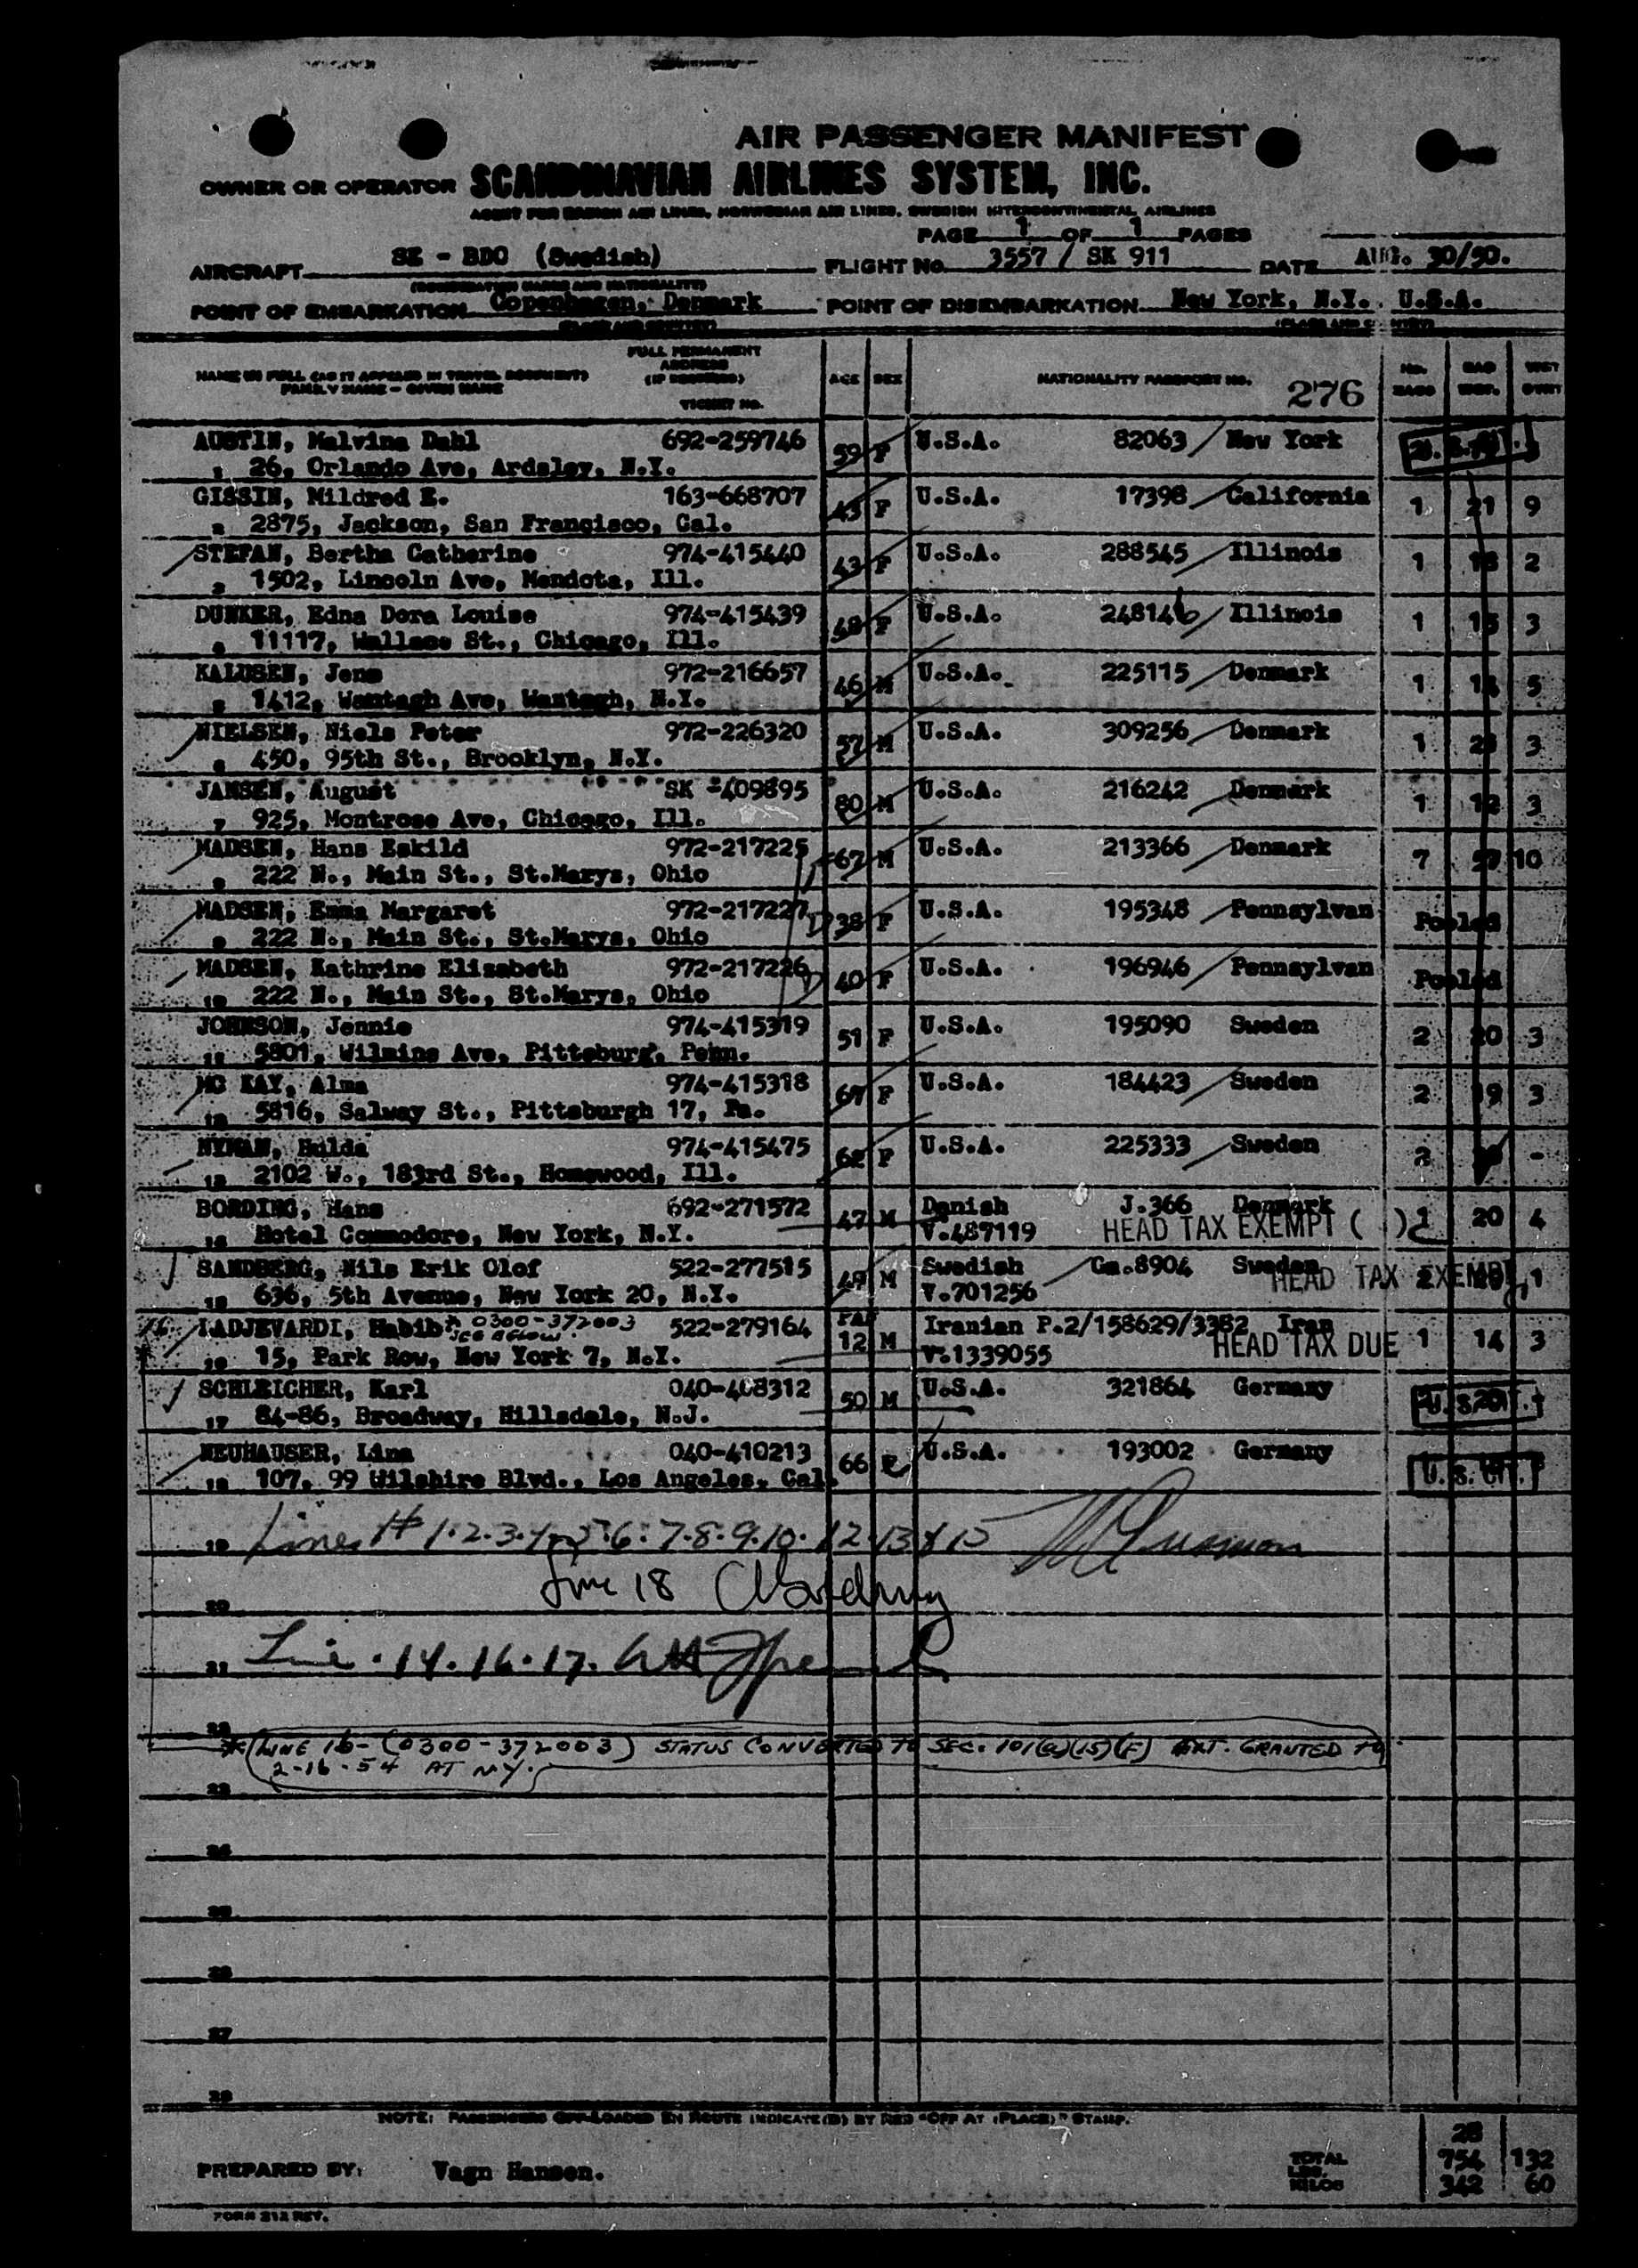 AIR PASSENGER MANIFEST
OWNER OR OPERATOR SCANDINAVIAN AIRLINES SYSTEM, INC.
AGENT FOR DANISH AIR LINES, NORWEGIAN AIR LINES, SWEDISH INTERCONTINENTAL AIRLINES
PAGE 1 OF 1 PAGES
AIRCRAFT SE - BDO (Swedish) FLIGHT No. 3557 / SK 911 DATE AUG. 30/50.
POINT OF EMBARKATION Copenhagen, Denmark POINT OF DISEMBARKATION New York, N.Y. U.S.A.
(PLACE AND COUNTRY) (PLACE AND COUNTRY)
NAME IN FULL (AS IT APPEARS IN TRAVEL DOCUMENT) FAMILY NAME - GIVEN NAME FULL PERMANENT ADDRESS (IF REQUIRED) TICKET NO. AGE SEX NATIONALITY PASSPORT NO. 276 NO. BAGS BAG WGT.
AUSTIN, Malvina Dahl 692-259746 59 F U.S.A. 82063 New York
1 26, Orlando Ave, Ardsley, N.Y.
GISSIN, Mildred E. 163-668707 43 F U.S.A. 17398 California 1 21 9
2 2875, Jackson, San Francisco, Cal.
STEFAN, Bertha Catherine 974-415440 43 F U.S.A. 288545 Illinois 1 2
3 1502, Lincoln Ave, Mendota, Ill.
DUNKER, Edna Dora Louise 974-415439 48 F U.S.A. 248146 Illinois 1 15 3
4 11117, Wallace St., Chicago, Ill.
KALUSEN, Jens 972-216657 46 M U.S.A. 225115 Denmark 1 5
5 1412, Wantagh Ave, Wantagh, N.Y.
NIELSEN, Niels Peter 972-226320 57 M U.S.A. 309256 Denmark 1 3
6 450, 95th St., Brooklyn, N.Y.
JANSEN, August SK -409895 80 M U.S.A. 216242 Denmark 1 12 3
7 925, Montrose Ave, Chicago, Ill.
MADSEN, Hans Eskild 972-217225 67 M U.S.A. 213366 Denmark 7 57 10
8 222 N., Main St., St.Marys, Ohio
MADSEN, Emma Margaret 972-217227 38 F U.S.A. 195348 Pennsylvan Pooled
9 222 N., Main St., St.Marys, Ohio
MADSEN, Kathrine Elisabeth 972-217226 40 F U.S.A. 196946 Pennsylvan Pooled
10 222 N., Main St., St.Marys, Ohio
JOHNSON, Jennie 974-415319 51 F U.S.A. 195090 Sweden 2 20 3
11 5801, Wilmins Ave, Pittsburg, Penn.
MC KAY, Alma 974-415318 67 F U.S.A. 184423 Sweden 2 19 3
12 5816, Salway St., Pittsburgh 17, Pa.
NYMAN, Hulda 974-415475 62 F U.S.A. 225333 Sweden 2 -
13 2102 W., 183rd St., Homewood, Ill.
BORDING, Hans 692-271572 47 M Danish J.366 Denmark 20 4
14 Hotel Commodore, New York, N.Y. V.487119 HEAD TAX EXEMPT ( )
SANDBERG, Nils Erik Olof 522-277515 49 M Swedish Ga.8904 Sweden 2 1
15 636, 5th Avenue, New York 20, N.Y. V.701256 HEAD TAX EXEMPT
16 LADJEVARDI, Habib A 0300-372003 SEE BELOW. 522-279164 12 M Iranian P.2/158629/3382 Iran 1 14 3
16 15, Park Row, New York 7, N.Y. V.1339055 HEAD TAX DUE
SCHLEICHER, Karl 040-408312 50 M U.S.A. 321864 Germany
17 84-86, Broadway, Hillsdale, N.J.
NEUHAUSER, Lina 040-410213 66 F U.S.A. 193002 Germany
18 107, 99 Wilshire Blvd., Los Angeles, Cal. U.S. CIT.
19 Lines # 1.2.3.4.5.6.7.8.9.10.12.13 & 15
20 Line 18
21 Line .14.16.17.
22
* LINE 16- (0300-372003) STATUS CONVERTED TO SEC. 101(a)(15)(F) EXT. GRANTED TO
2-16-54 AT NY.
23
24
25
26
27
28
NOTE: PASSENGERS OFF-LOADED EN ROUTE INDICATE(D) BY RED "OFF AT (PLACE)" STAMP.
28
PREPARED BY: Vagn Hansen. TOTAL LBS. 754 132
KILOS 342 60
FORM 212 REV.